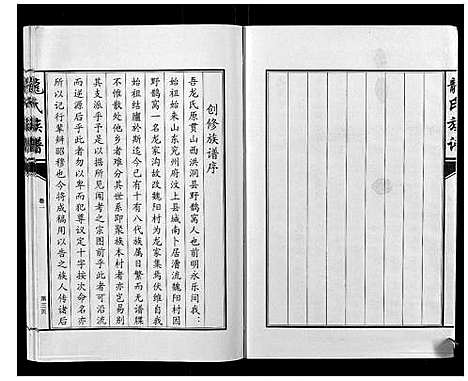 龍氏族譜
創修族谱序
吾龙氏原贯山西洪洞县野鹊窝人自明永乐间我
始祖始来山东兖州府汶上县城南卜居潘流魏阳村因
野鹊窝一名龙家沟故改魏阳村为龙家集焉伏维自我
始祖结廬於斯迄今已有十八代族属日繁而无谱牒
不惟散处他乡者难分其世系即聚族本村者亦岂易别
其支派乎予是以按所见闻考之宗图前乎此者可沿流
而逆源后乎此者勿以卑而犯尊议定十字按次命名亦
所以记行辈辨昭穆也今将成稿用以告之族人传诸后
龍氏族譜
卷一
第三页